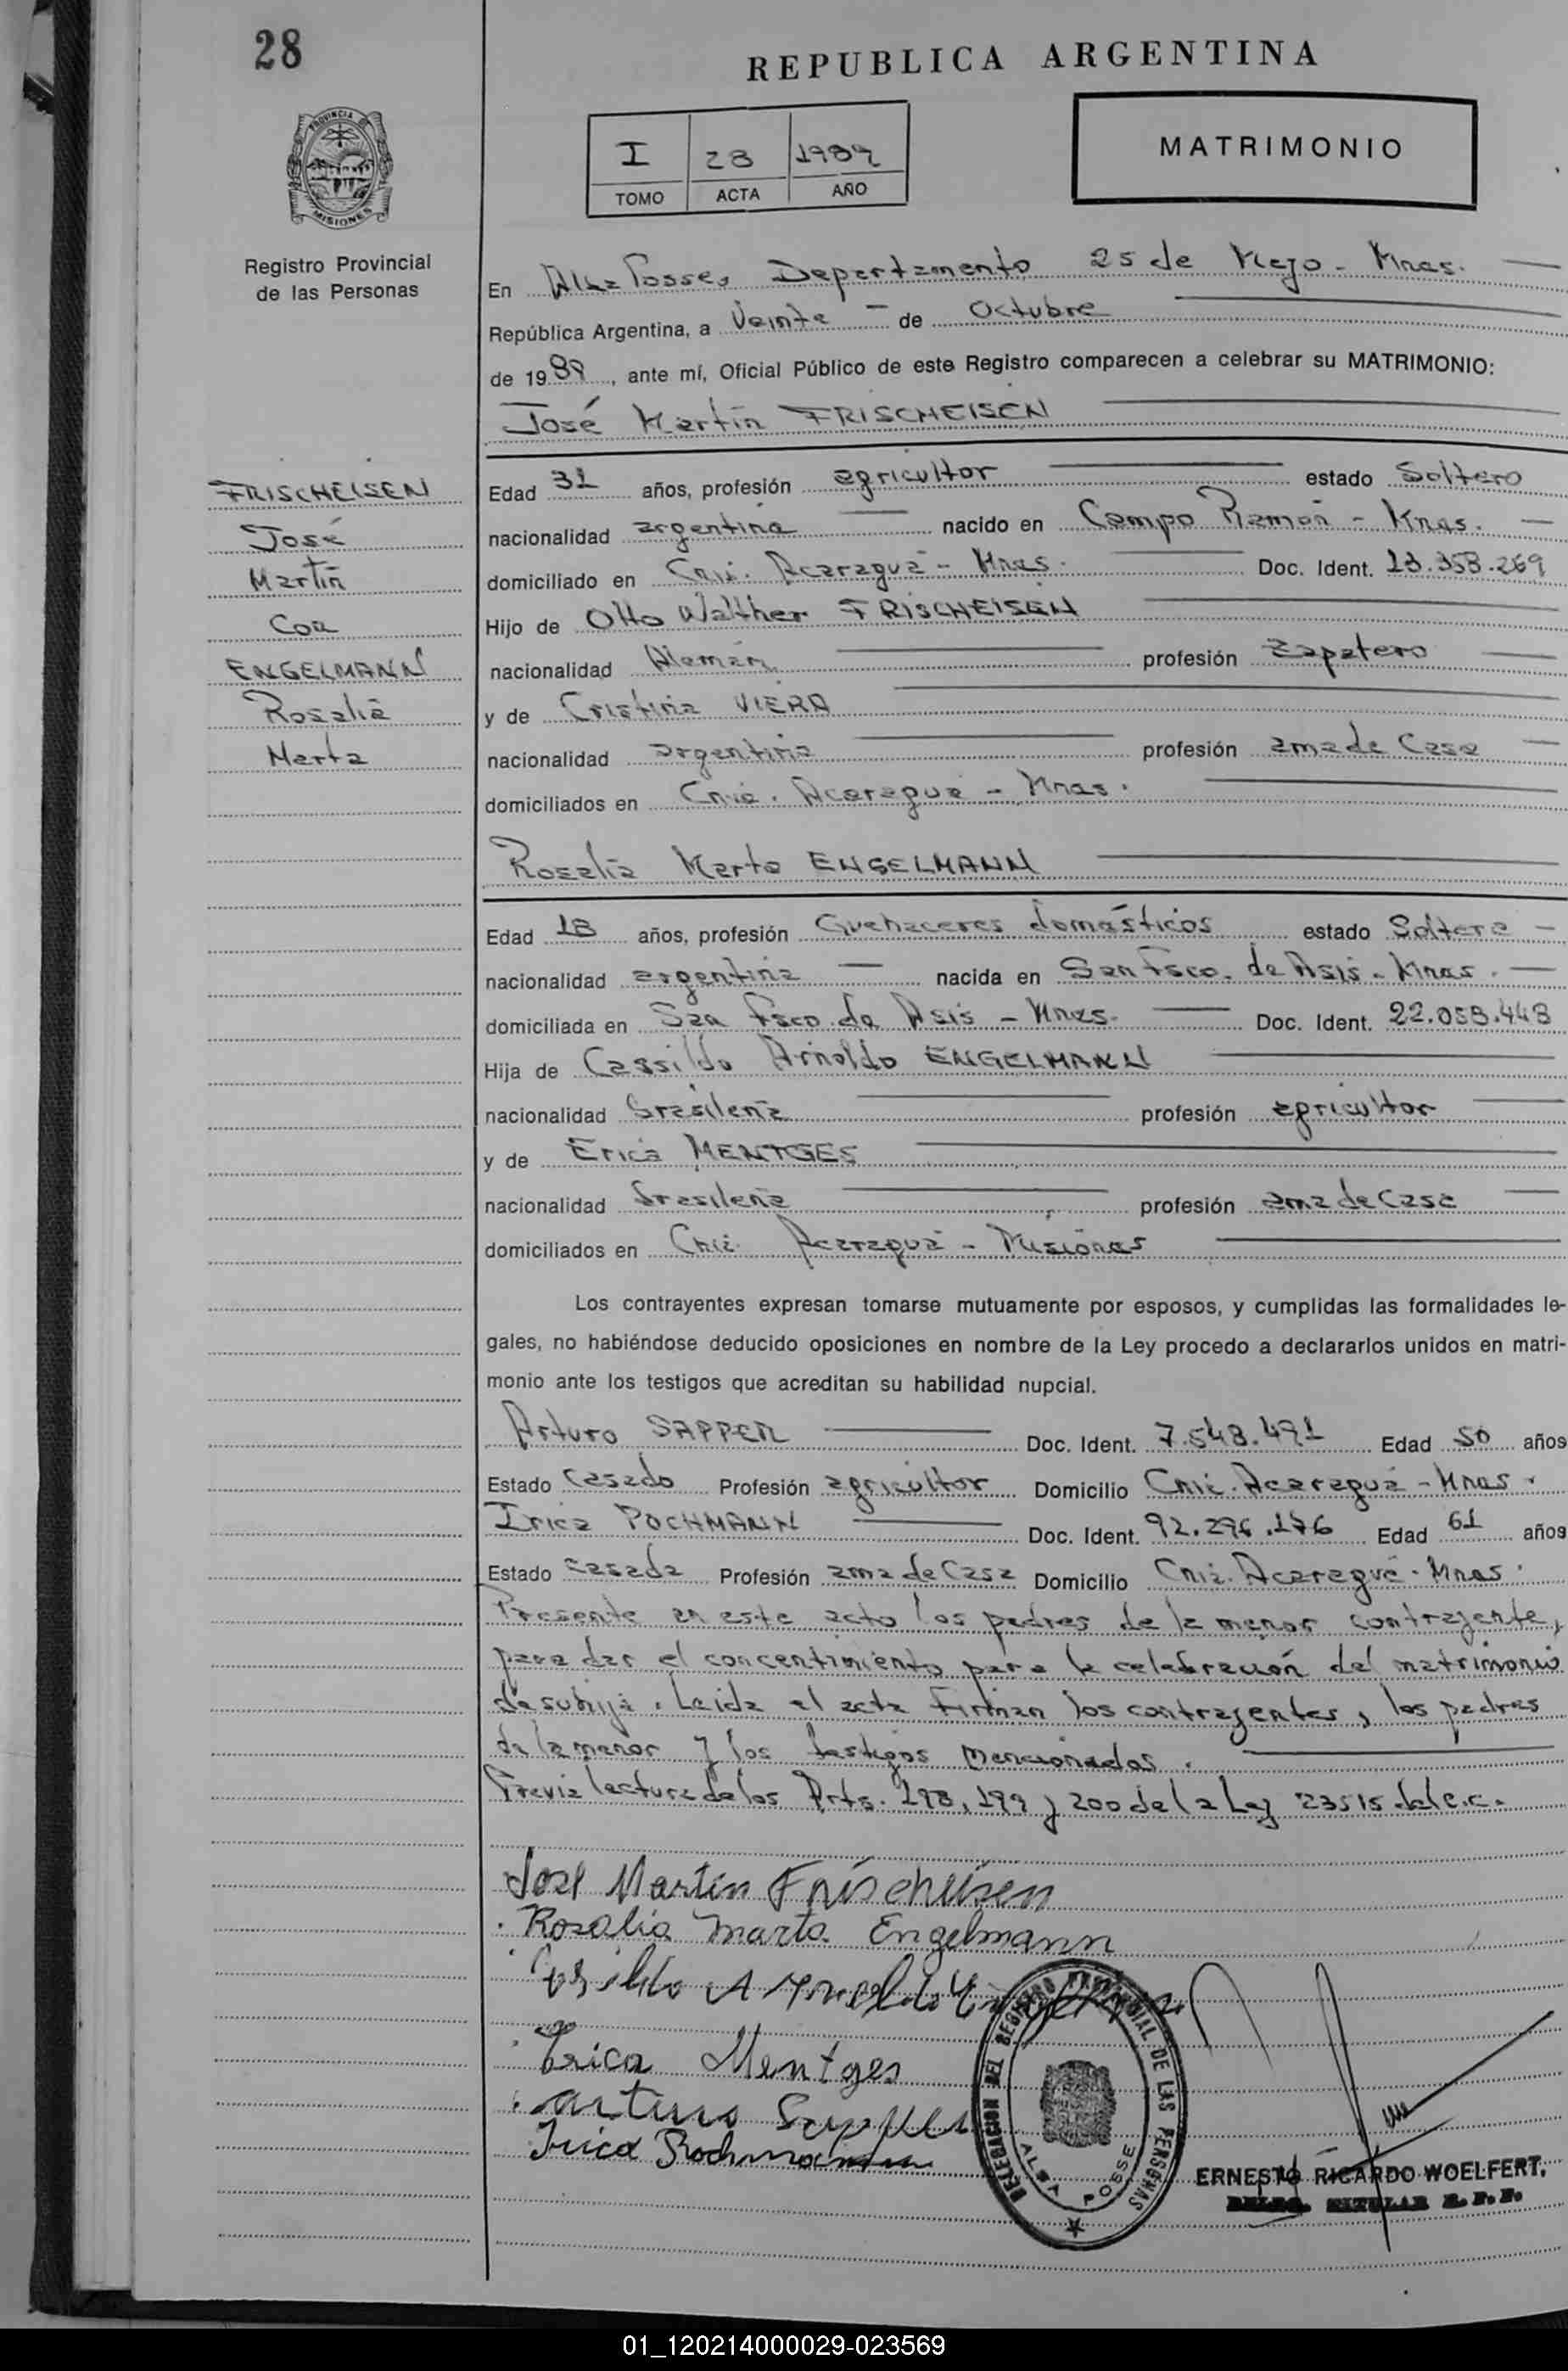 28
REPUBLICA ARGENTINA
PROVINCIA DE
MISIONES
I 28 1989
TOMO ACTA AÑO
MATRIMONIO
Registro Provincial
de las Personas
En Alba Posse, Departamento 25 de Mayo - Mnes.
República Argentina, a Veinte de Octubre
de 1989, ante mí, Oficial Público de este Registro comparecen a celebrar su MATRIMONIO:
José Martín FRISCHEISEN
FRISCHEISEN
José
Martín
Con
ENGELMANN
Rosalía
Marta
Edad 31 años, profesión agricultor estado Soltero
nacionalidad argentina nacido en Campo Ramón - Mnes.
domiciliado en Cnia. Acaragua - Mnes. Doc. Ident. 13.358.269
Hijo de Otto Walther FRISCHEISEN
nacionalidad Alemán profesión Zapatero
y de Cristina VIERA
nacionalidad argentina profesión ama de Casa
domiciliados en Cnia. Acaragua - Mnes.
Rosalía Marta ENGELMANN
Edad 18 años, profesión Quehaceres domésticos estado Soltera
nacionalidad argentina nacida en San Fsco. de Asis - Mnes.
domiciliada en San Fsco de Asis - Mnes. Doc. Ident. 22.058.448
Hija de Cassildo Arnoldo ENGELMANN
nacionalidad brasilena profesión agricultor
y de Erica MENTGES
nacionalidad brasilena profesión ama de Casa
domiciliados en Cnia. Acaragua - Misiones
Los contrayentes expresan tomarse mutuamente por esposos, y cumplidas las formalidades le-
gales, no habiéndose deducido oposiciones en nombre de la Ley procedo a declararlos unidos en matri-
monio ante los testigos que acreditan su habilidad nupcial.
Arturo SAPPER Doc. Ident. 7.548.491 Edad 50 años
Estado Casado Profesión agricultor Domicilio Cnia. Acaragua - Mnes.
Irica POCHMANN Doc. Ident. 92.296.176 Edad 61 años
Estado casada Profesión ama de Casa Domicilio Cnia. Acaragua - Mnes.
Presente en este acto los padres de la menor contrayente,
para dar el concentimiento para la celebración del matrimonio
de su hija. Leida el acta firman los contrayentes, los padres
de la menor y los testigos mencionados.
Previa lectura de los Arts. 198, 199 y 200 de la Ley 23515 del c.c.
José Martin Frischeisen
Rosalia Marta Engelmann
Erica Mentges
Arturo Sapper
Irica Pochmann
DELEGACION DEL REGISTRO PROVINCIAL DE LAS PERSONAS
ALBA POSSE
ERNESTO RICARDO WOELFERT.
01_120214000029-023569